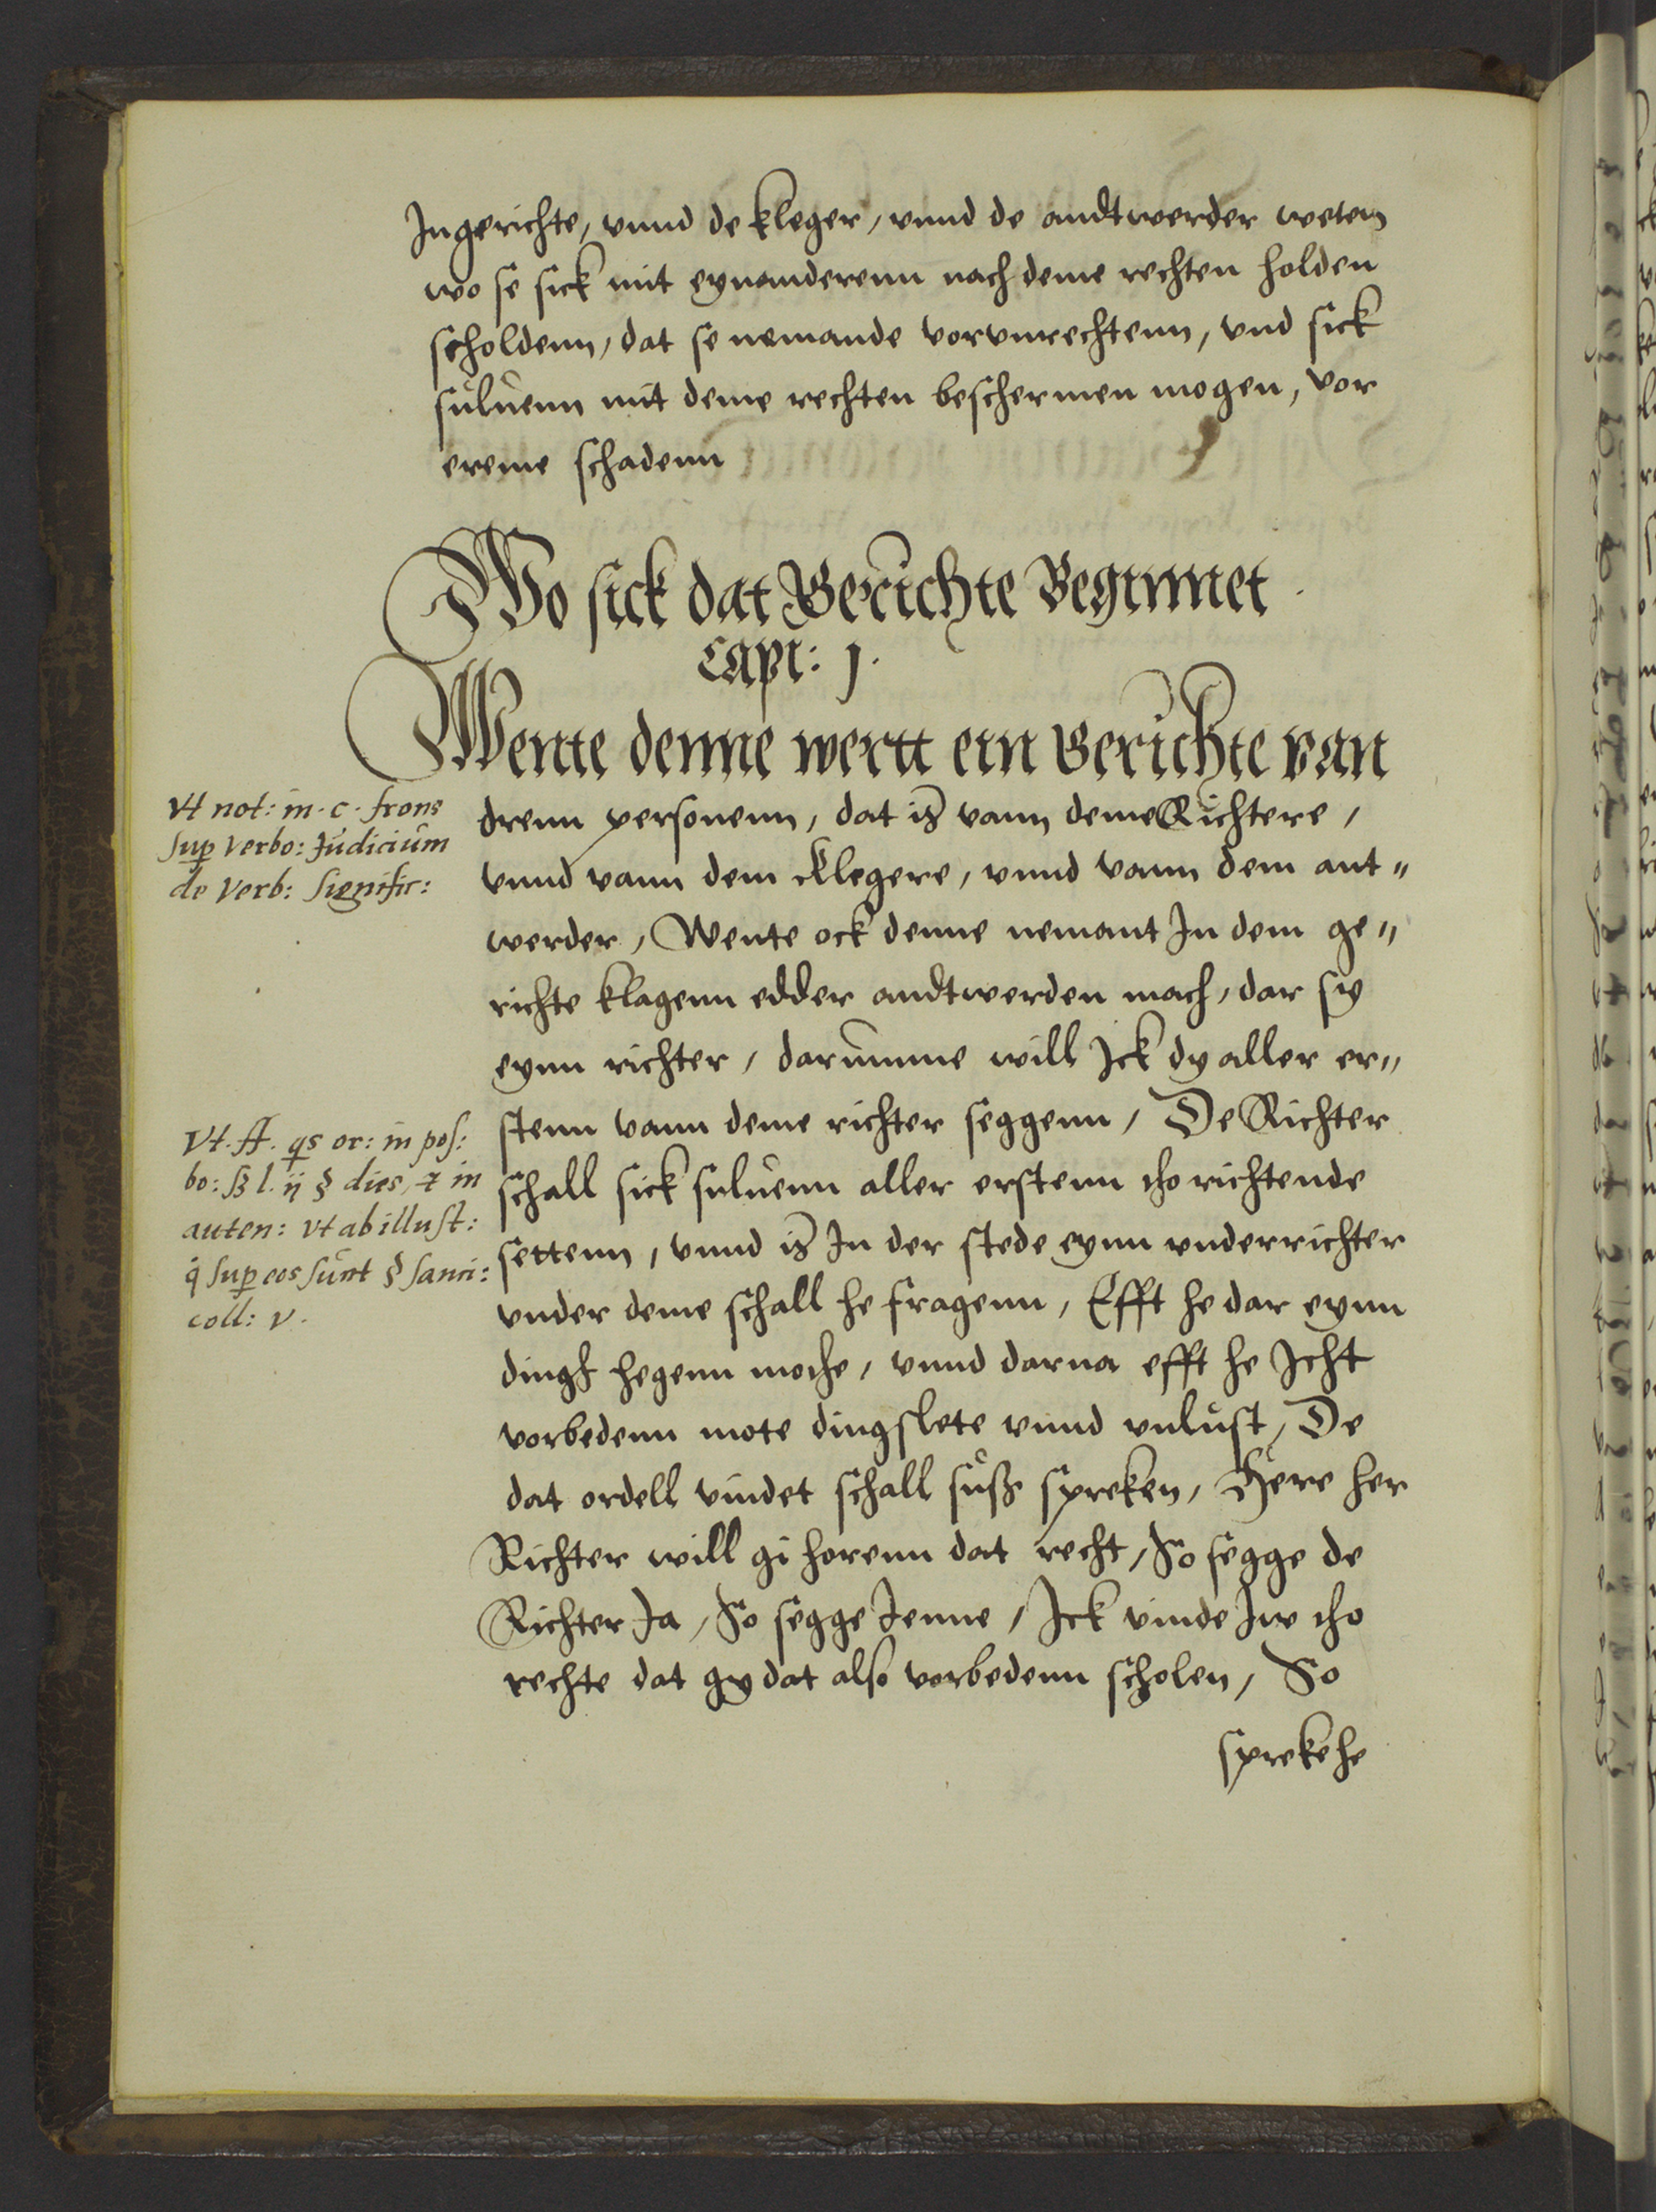 In gerichte, vnnd de kleger, vnnd de andtwerder weten
wo se sick mit eynanderenn nach deme rechten holden
scholdenn, dat se nemande vorvnrechtenn, vnd sick
suluenn mit deme rechten beschermen mogen, vor
ereme schadenn
Wo sick dat Gerichte Beginnet
Capt: j.
Wente denne wertt ein Gerichte van
Vt not: in. c. frons
sup verbo: Judicium
de verb: signific:
drenn personenn, dat is vann deme Richtere,
vnnd vann dem Klegere, vnnd vann dem ant„
werder, Wente ock denne nemant In dem ge„
richte klagenn edder andtwerden mach, dar sy
eynn richter, darumme will Ick dy aller er„
stenn vann deme richter seggenn, De Richter
schall sick suluenn aller erstenn tho richtende
settenn, vnnd is In der stede eynn vnderrichter
vnder deme schall he fragenn, Efft he dar eynn
dingk hegenn mothe, vnnd darna efft he Icht
vorbedenn mote dingslete vnnd vnlust, De
dat ordell vindet schall suß spreken, Here her
Richter will gi horenn dat recht, So segge de
Richter Ja, So segge Jenne, Ick vinde Iw tho
rechte dat gy dat also vorbedenn scholen, So
spreke he
Vt. ff. qs or: in pos:
bo: ß l. ij § dies, & in
auten: vt ab illust:
q sup eos sunt § sanci:
coll: v.